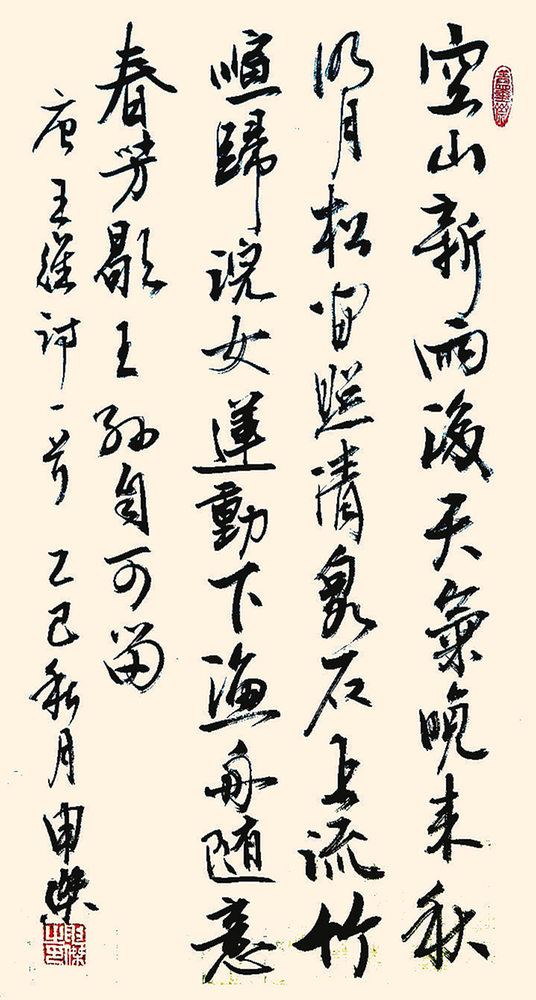 空山新雨後天氣晚来秋
明月松间照清泉石上流竹
喧歸浣女蓮動下漁舟随意
春芳歇王孙自可留
唐王維詩一首 乙巳秋月申